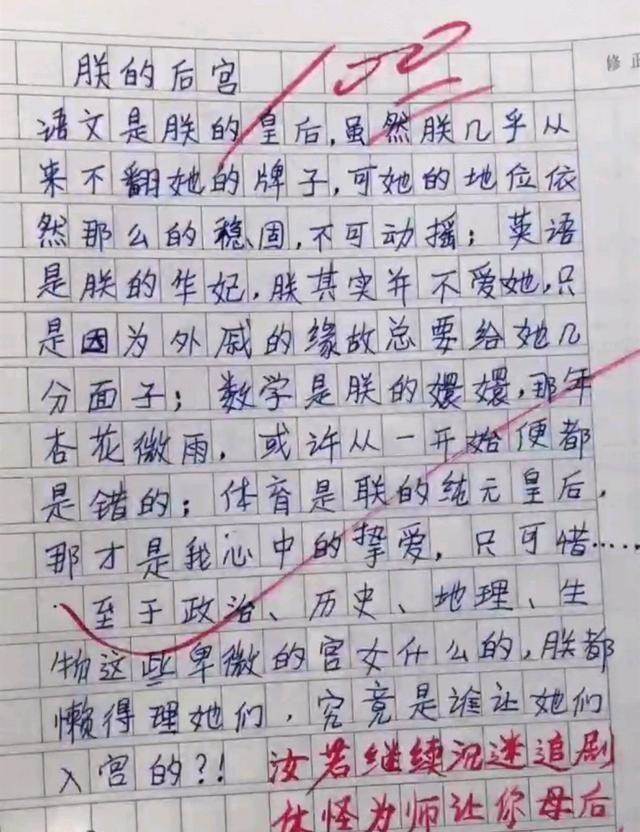 朕的后宫
修正
语文是朕的皇后,虽然朕几乎从
来不翻她的牌子,可她的地位依
然那么的稳固,不可动摇;英语
是朕的华妃,朕其实并不爱她,只
是因为外戚的缘故总要给她几
分面子;数学是朕的嬛嬛,那年
杏花微雨,或许从一开始便都
是错的;体育是联的纯元皇后,
那才是我心中的挚爱,只可惜……
至于政治、历史、地理、生
物这些卑微的宫女什么的,朕都
懒得理她们,究竟是谁让她们
入宫的?!
汝若继续沉迷追剧
休怪为师让你母后